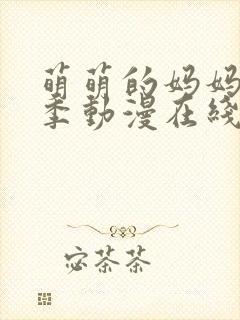 萌萌的妈妈
季動漫在綫
宓茶茶